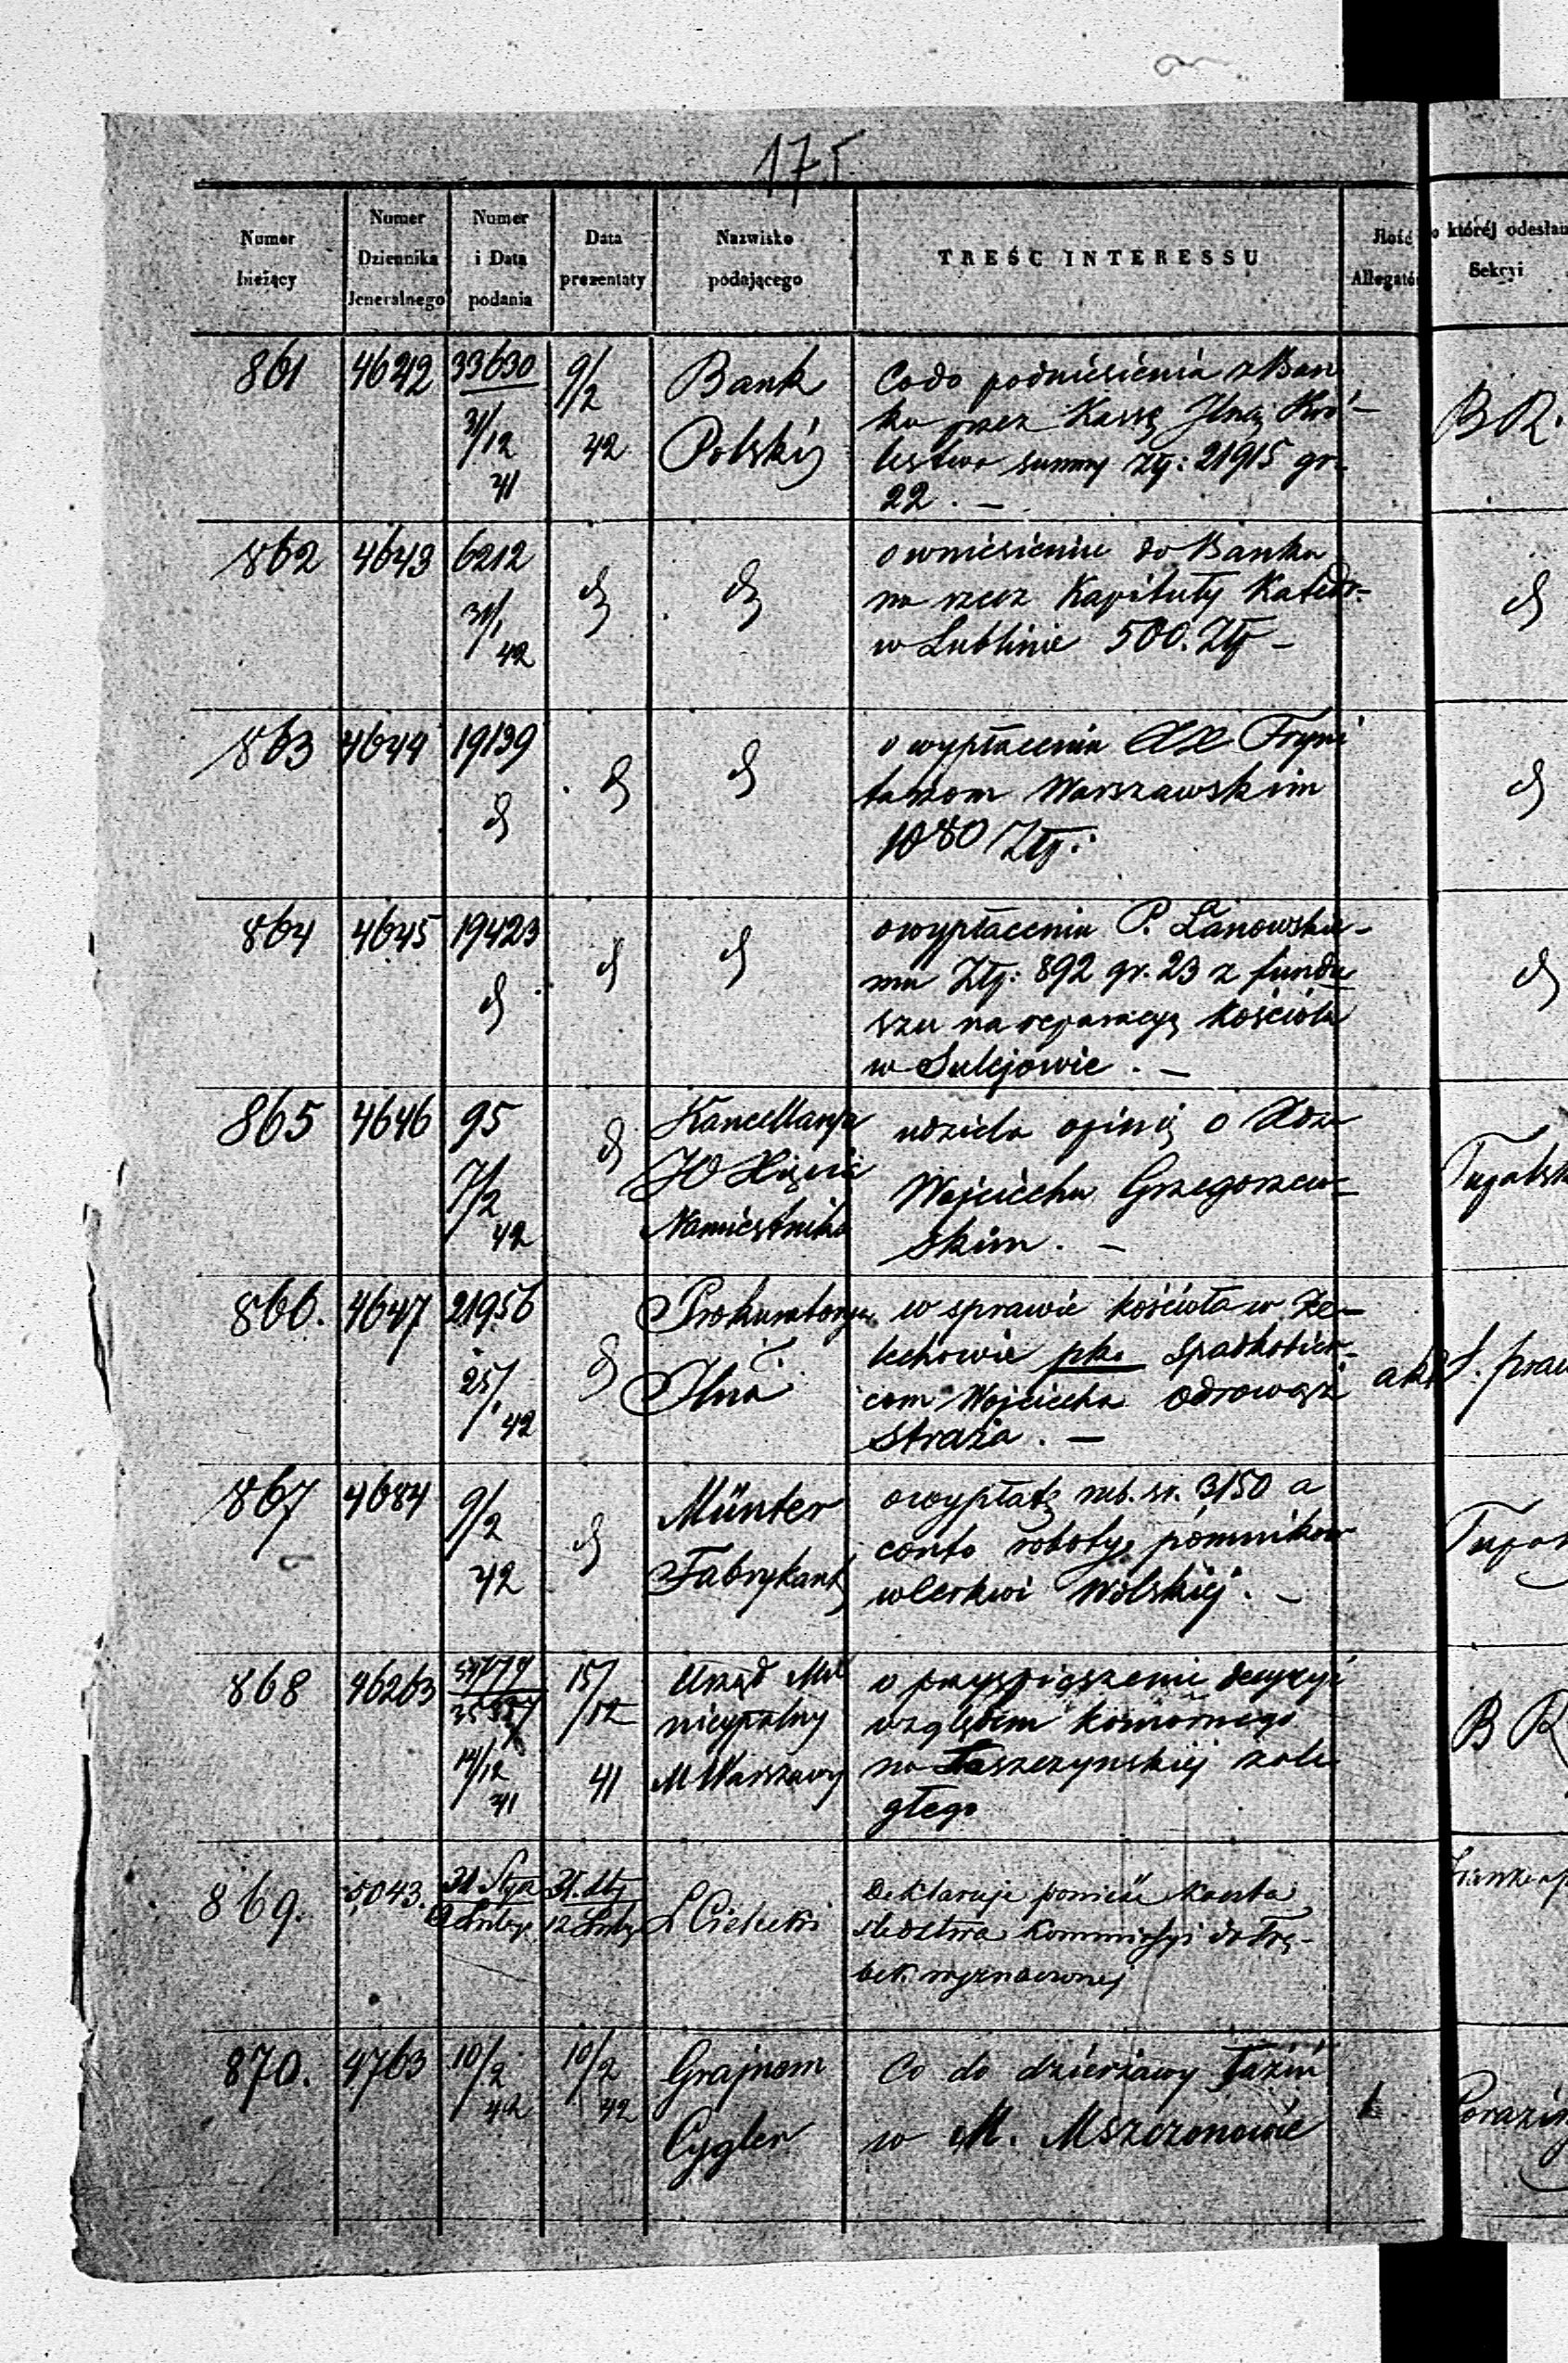 175
Numer bieżący
Numer Dziennika Jeneralnego
Numer i Data podania
Data prezentaty
Nazwisko podającego
TREŚĆ INTERESSU
Ilość Allegatów
do której odesłan Sekcyi
861 4642 33630 31/12 41 9/2 42
Bank
Polski
Co do podniesienia z Ban
ku przez Kassę Jlną Kró-
lestwa summy złp: 21915 gr.
22. —
B R.
862 4643 6212 31/1 42 d d
o wniesieniu do Banku
na rzecz Kapituły Katedr-
w Lublinie 500. Złp —
d
863 4644 19139 d d d
o wypłacenia XX Tryni
tarzom Warszawskim
1080 Złp:
d
864 4645 19423 d d d
o wypłacenia P. Łanowskie-
mu Złp: 892 gr. 23 z fundu
szu na reparacyę kościoła
w Sulejowie. —
d
865 4646 95 7/2 42 d
Kancellarya
JO Xięcia
Namiestnika
udziela opinię o Xdzu
Wojciechu Grzegorzew-
skim. —
866. 4647 21956 25/1 42 d
Prokuratorya
Jlna
w sprawie kościoła w Że-
lechowie pko Spadkobier-
com Wojciecha Odrowąż
Straża. —
867 4684 9/2 42 d
Münter
Fabrykant
o wypłatę rub. sr. 3150 a
conto roboty pomników
w Cerkwi Wolskiej. —
868 46263 14/12 41 15/12 41
Urząd Mu
nicypalny
M Warszawy
o przyspieszenie decyzyi
względem komornego
na Łaszczynskiej zale
głego
B R
869. 5043.
Deklaruje ponieść koszta
śledztwa Kommissyi do Trę-
bek wyznaczonej
870. 4763 10/2 42 10/2 42
Grajnem
Cygler
Co do dzierżawy Łaźni
w M. Mszczonowie
1